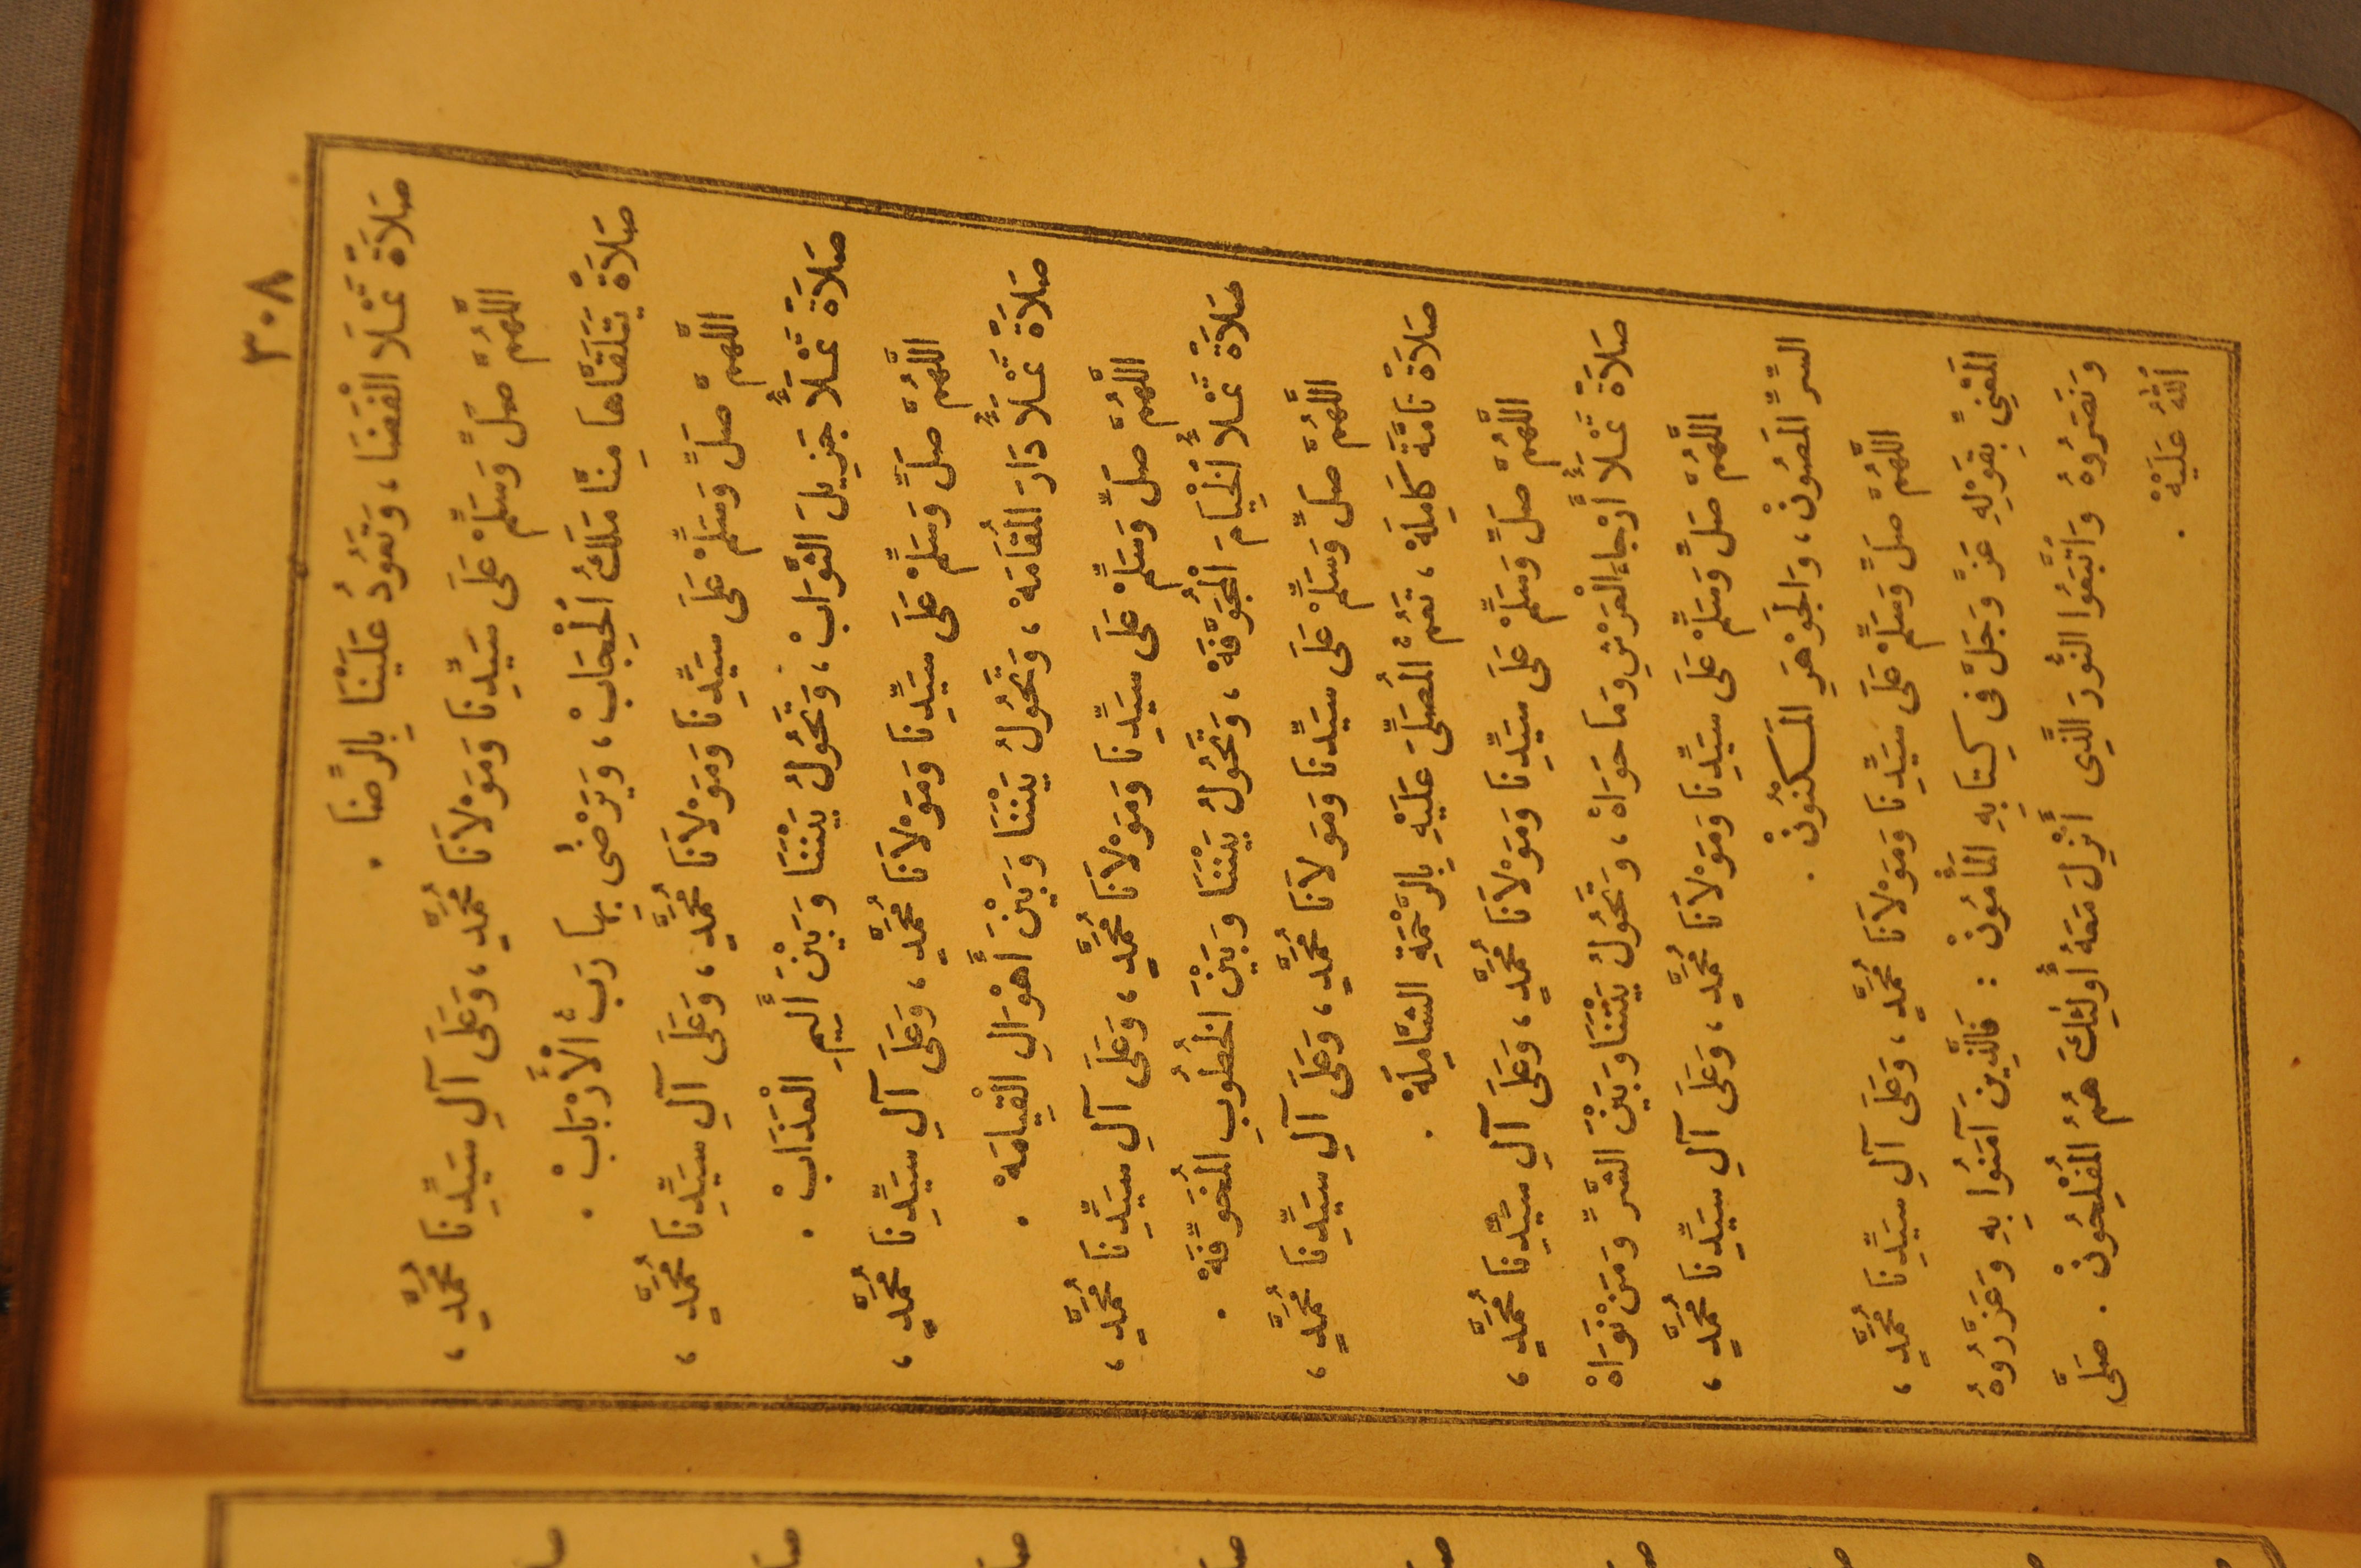 ٣٠٨
صَلَاةً تَمْلَا الْفَضَا ، وَتَعُودُ عَلَيْنَا بِالرِّضَا .
اللَّهُمَّ صَلِّ وَسَلِّمْ عَلَى سَيِّدِنَا وَمَوْلَانَا مُحَمَّدٍ ، وَعَلَى آلِ سَيِّدِنَا مُحَمَّدٍ ،
صَلَاةً يَتَلَقَّاهَا مِنَّا مَلَكُ الْحِجَابْ ، وَيَرْضَى بِهَا رَبُّ الْأَرْبَابْ .
اللَّهُمَّ صَلِّ وَسَلِّمْ عَلَى سَيِّدِنَا وَمَوْلَانَا مُحَمَّدٍ ، وَعَلَى آلِ سَيِّدِنَا مُحَمَّدٍ ،
صَلَاةً تَمْلَأُ جَزِيلَ الثَّوَابْ ، وَتَحُولُ بَيْنَنَا وَبَيْنَ أَلِيمِ الْعَذَابْ .
اللَّهُمَّ صَلِّ وَسَلِّمْ عَلَى سَيِّدِنَا وَمَوْلَانَا مُحَمَّدٍ ، وَعَلَى آلِ سَيِّدِنَا مُحَمَّدٍ ،
صَلَاةً تَمْلَأُ دَارَ الْمُقَامَهْ ، وَتَحُولُ بَيْنَنَا وَبَيْنَ أَهْوَالِ الْقِيَامَهْ .
اللَّهُمَّ صَلِّ وَسَلِّمْ عَلَى سَيِّدِنَا وَمَوْلَانَا مُحَمَّدٍ ، وَعَلَى آلِ سَيِّدِنَا مُحَمَّدٍ ،
صَلَاةً تَمْلَأُ الْخِيَامَ الْمُجَوَّفَهْ ، وَتَحُولُ بَيْنَنَا وَبَيْنَ الْخُطُوبِ الْمُخَوِّفَهْ .
اللَّهُمَّ صَلِّ وَسَلِّمْ عَلَى سَيِّدِنَا وَمَوْلَانَا مُحَمَّدٍ ، وَعَلَى آلِ سَيِّدِنَا مُحَمَّدٍ ،
صَلَاةً تَامَّةً كَامِلَهْ ، تَعُمُّ الْمُصَلِّيَ عَلَيْهِ بِالرَّحْمَةِ الشَّامِلَهْ .
اللَّهُمَّ صَلِّ وَسَلِّمْ عَلَى سَيِّدِنَا وَمَوْلَانَا مُحَمَّدٍ ، وَعَلَى آلِ سَيِّدِنَا مُحَمَّدٍ ،
صَلَاةً تَمْلَأُ أَرْجَاءَ الْعَرْشِ وَمَا حَوَاهْ ، وَتَحُولُ بَيْنَنَا وَبَيْنَ الشَّرِّ وَمَنْ نَوَاهْ
اللَّهُمَّ صَلِّ وَسَلِّمْ عَلَى سَيِّدِنَا وَمَوْلَانَا مُحَمَّدٍ ، وَعَلَى آلِ سَيِّدِنَا مُحَمَّدٍ ،
السِّرِّ الْمَصُونْ ، وَالْجَوْهَرِ الْمَكْنُونْ .
اللَّهُمَّ صَلِّ وَسَلِّمْ عَلَى سَيِّدِنَا وَمَوْلَانَا مُحَمَّدٍ ، وَعَلَى آلِ سَيِّدِنَا مُحَمَّدٍ ،
الْمَعْنِيِّ بِقَوْلِهِ عَزَّ وَجَلَّ فِي كِتَابِهِ الْمَأْمُونْ : فَالَّذِينَ آمَنُوا بِهِ وَعَزَّرُوهُ
وَنَصَرُوهُ وَاتَّبَعُوا النُّورَ الَّذِى أُنْزِلَ مَعَهُ أُولَئِكَ هُمُ الْمُفْلِحُونْ . صَلَّى
اللَّهُ عَلَيْهْ .